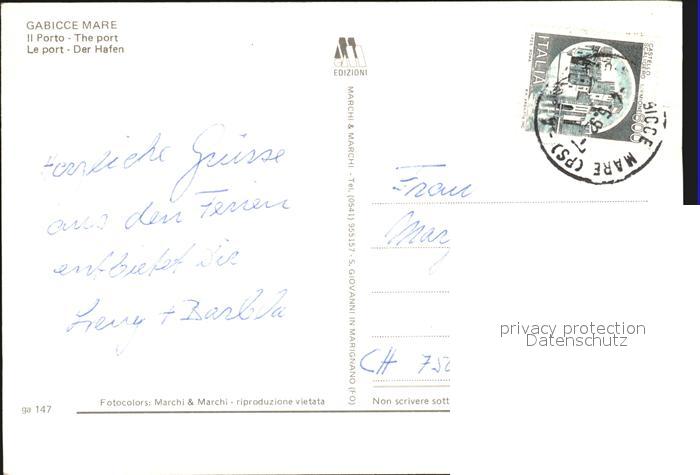 GABICCE MARE
Il Porto - The port
Le port - Der Hafen
EDIZIONI
ITALIA
CASTELLO
600
BICCE MARE (PS)
MARCHI & MARCHI - Tel. (0541) 955157 - S. GIOVANNI IN MARIGNANO (FO)
Herzliche Grüsse
aus den Ferien
entbietet Die
+
Frau
CH 750
privacy protection
Datenschutz
Fotocolors: Marchi & Marchi - riproduzione vietata
Non scrivere sott
ga 147